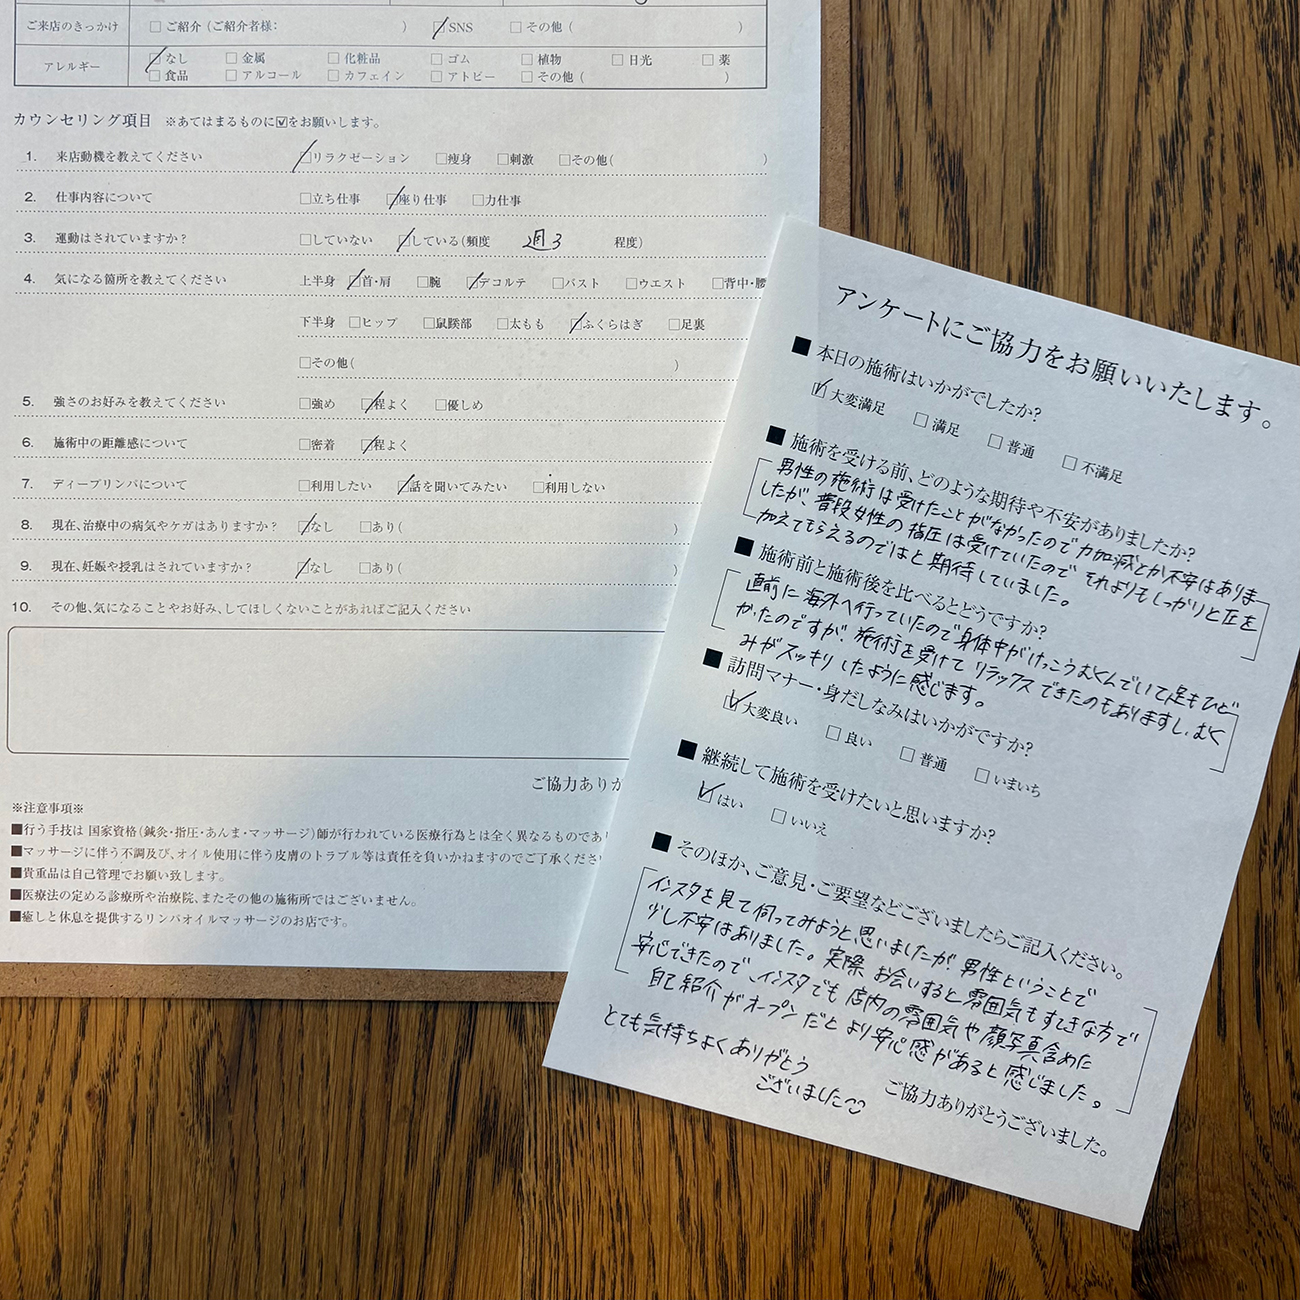 ご来店のきっかけ □ご紹介(ご紹介者様: ) ☑SNS □その他( )
アレルギー ☑なし □金属 □化粧品 □ゴム □植物 □日光 □薬
□食品 □アルコール □カフェイン □アトピー □その他( )
カウンセリング項目 ※あてはまるものに☑をお願いします。
1. 来店動機を教えてください ☑リラクゼーション □痩身 □刺激 □その他( )
2. 仕事内容について □立ち仕事 ☑座り仕事 □力仕事
3. 運動はされていますか? □していない ☑している(頻度 週3 程度)
4. 気になる箇所を教えてください 上半身 ☑首・肩 □腕 ☑デコルテ □バスト □ウエスト □背中・腰
下半身 □ヒップ □鼠蹊部 □太もも ☑ふくらはぎ □足裏
□その他( )
5. 強さのお好みを教えてください □強め ☑程よく □優しめ
6. 施術中の距離感について □密着 ☑程よく
7. ディープリンパについて □利用したい ☑話を聞いてみたい □利用しない
8. 現在、治療中の病気やケガはありますか? ☑なし □あり( )
9. 現在、妊娠や授乳はされていますか? ☑なし □あり( )
10. その他、気になることやお好み、してほしくないことがあればご記入ください
ご協力ありか
※注意事項※
■行う手技は 国家資格(鍼灸・指圧・あんま・マッサージ)師が行われている医療行為とは全く異なるものであり
■マッサージに伴う不調及び、オイル使用に伴う皮膚のトラブル等は責任を負いかねますのでご了承くださ
■貴重品は自己管理でお願い致します。
■医療法の定める診療所や治療院、またその他の施術所ではございません。
■癒しと休息を提供するリンパオイルマッサージのお店です。
アンケートにご協力をお願いいたします。
■ 本日の施術はいかがでしたか?
☑大変満足 □満足 □普通 □不満足
■ 施術を受ける前、どのような期待や不安がありましたか?
男性の施術は受けたことがなかったので力加減とか不安はありま
したが、普段女性の指圧は受けていたので それよりもしっかりと圧を
加えてもらえるのではと期待していました。
■ 施術前と施術後を比べるとどうですか?
直前に海外へ行っていたので身体中がけっこうむくんでいて足もひど
かったのですが、施術を受けて リラックスできたのもありますし、むく
みがスッキリしたように感じます。
■ 訪問マナー・身だしなみはいかがですか?
☑大変良い □良い □普通 □いまいち
■ 継続して施術を受けたいと思いますか?
☑はい □いいえ
■ そのほか、ご意見・ご要望などございましたらご記入ください。
インスタを見て伺ってみようと思いましたが、男性ということで
少し不安はありました。実際 お会いすると雰囲気もすてきな方で
安心できたので、インスタでも 店内の雰囲気や顔写真含めた
自己紹介がオープンだと より安心感があると感じました。
とても気持ちよくありがとう
ございました
ご協力ありがとうございました。